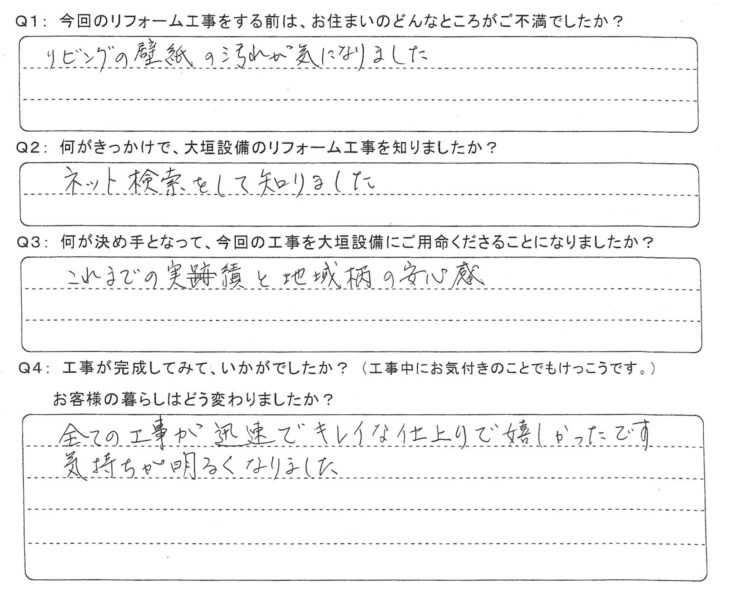 Q1: 今回のリフォーム工事をする前は、お住まいのどんなところがご不満でしたか?
リビングの壁紙の汚れが気になりました
Q2: 何がきっかけで、大垣設備のリフォーム工事を知りましたか?
ネット検索をして知りました
Q3: 何が決め手となって、今回の工事を大垣設備にご用命くださることになりましたか?
これまでの実績と地域柄の安心感
Q4: 工事が完成してみて、いかがでしたか?(工事中にお気付きのことでもけっこうです。)
お客様の暮らしはどう変わりましたか?
全ての工事が迅速でキレイな仕上りで嬉しかったです
気持ちが明るくなりました